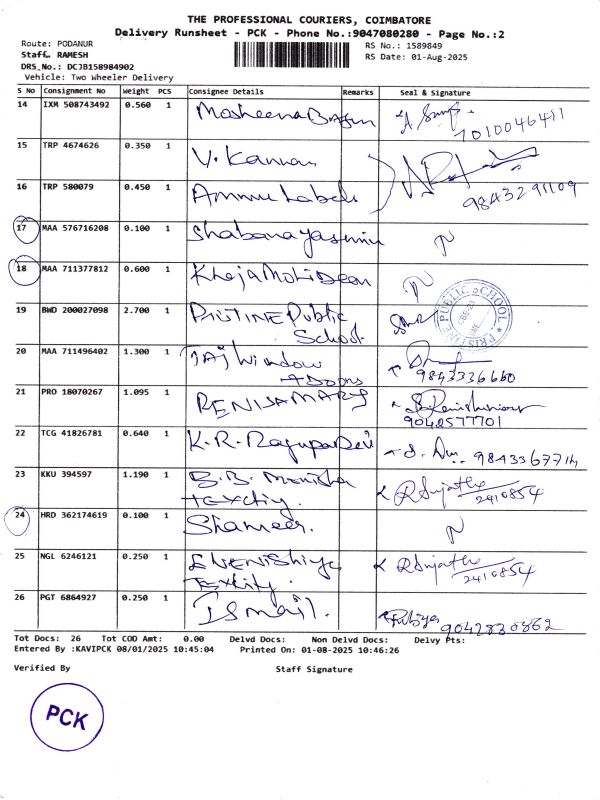 THE PROFESSIONAL COURIERS, COIMBATORE
Delivery Runsheet - PCK - Phone No.:9047080280 - Page No.:2
Route: PODANUR
RS No.: 1589849
Staff. RAMESH
RS Date: 01-Aug-2025
DRS No.: DCJB158984902
Vehicle: Two Wheeler Delivery
S No Consignment No Weight PCS Consignee Details Remarks Seal & Signature
14 IXM 508743492 0.560 1
7010046411
15 TRP 4674626 0.350 1 V. Kannan
16 TRP 580079 0.450 1 Ammu Labels
9843291109
17 MAA 576716208 0.100 1 Shabana Yasmin
18 MAA 711377812 0.600 1 Khaja Mohideen
19 BWD 200027098 2.700 1 PRISTINE Public
School
PUBLIC SCHOOL
20 MAA 711496402 1.300 1 TAJ Window
+ Doors
9843336660
21 PRO 18070267 1.095 1 RENISAMARY
9042577701
22 TCG 41826781 0.640 1 K.R. Ragupa Devi
23 KKU 394597 1.190 1 B.B. Monisha
Textig.
R Sujatha
2410854
24 HRD 362174619 0.100 1 Shameer.
25 NGL 6246121 0.250 1
R Sujatha
2410854
26 PGT 6864927 0.250 1 Ismail.
9042830862
Tot Docs: 26 Tot COD Amt: 0.00 Delvd Docs: Non Delvd Docs: Delvy Pts:
Entered By :KAVIPCK 08/01/2025 10:45:04 Printed On: 01-08-2025 10:46:26
Verified By Staff Signature
PCK